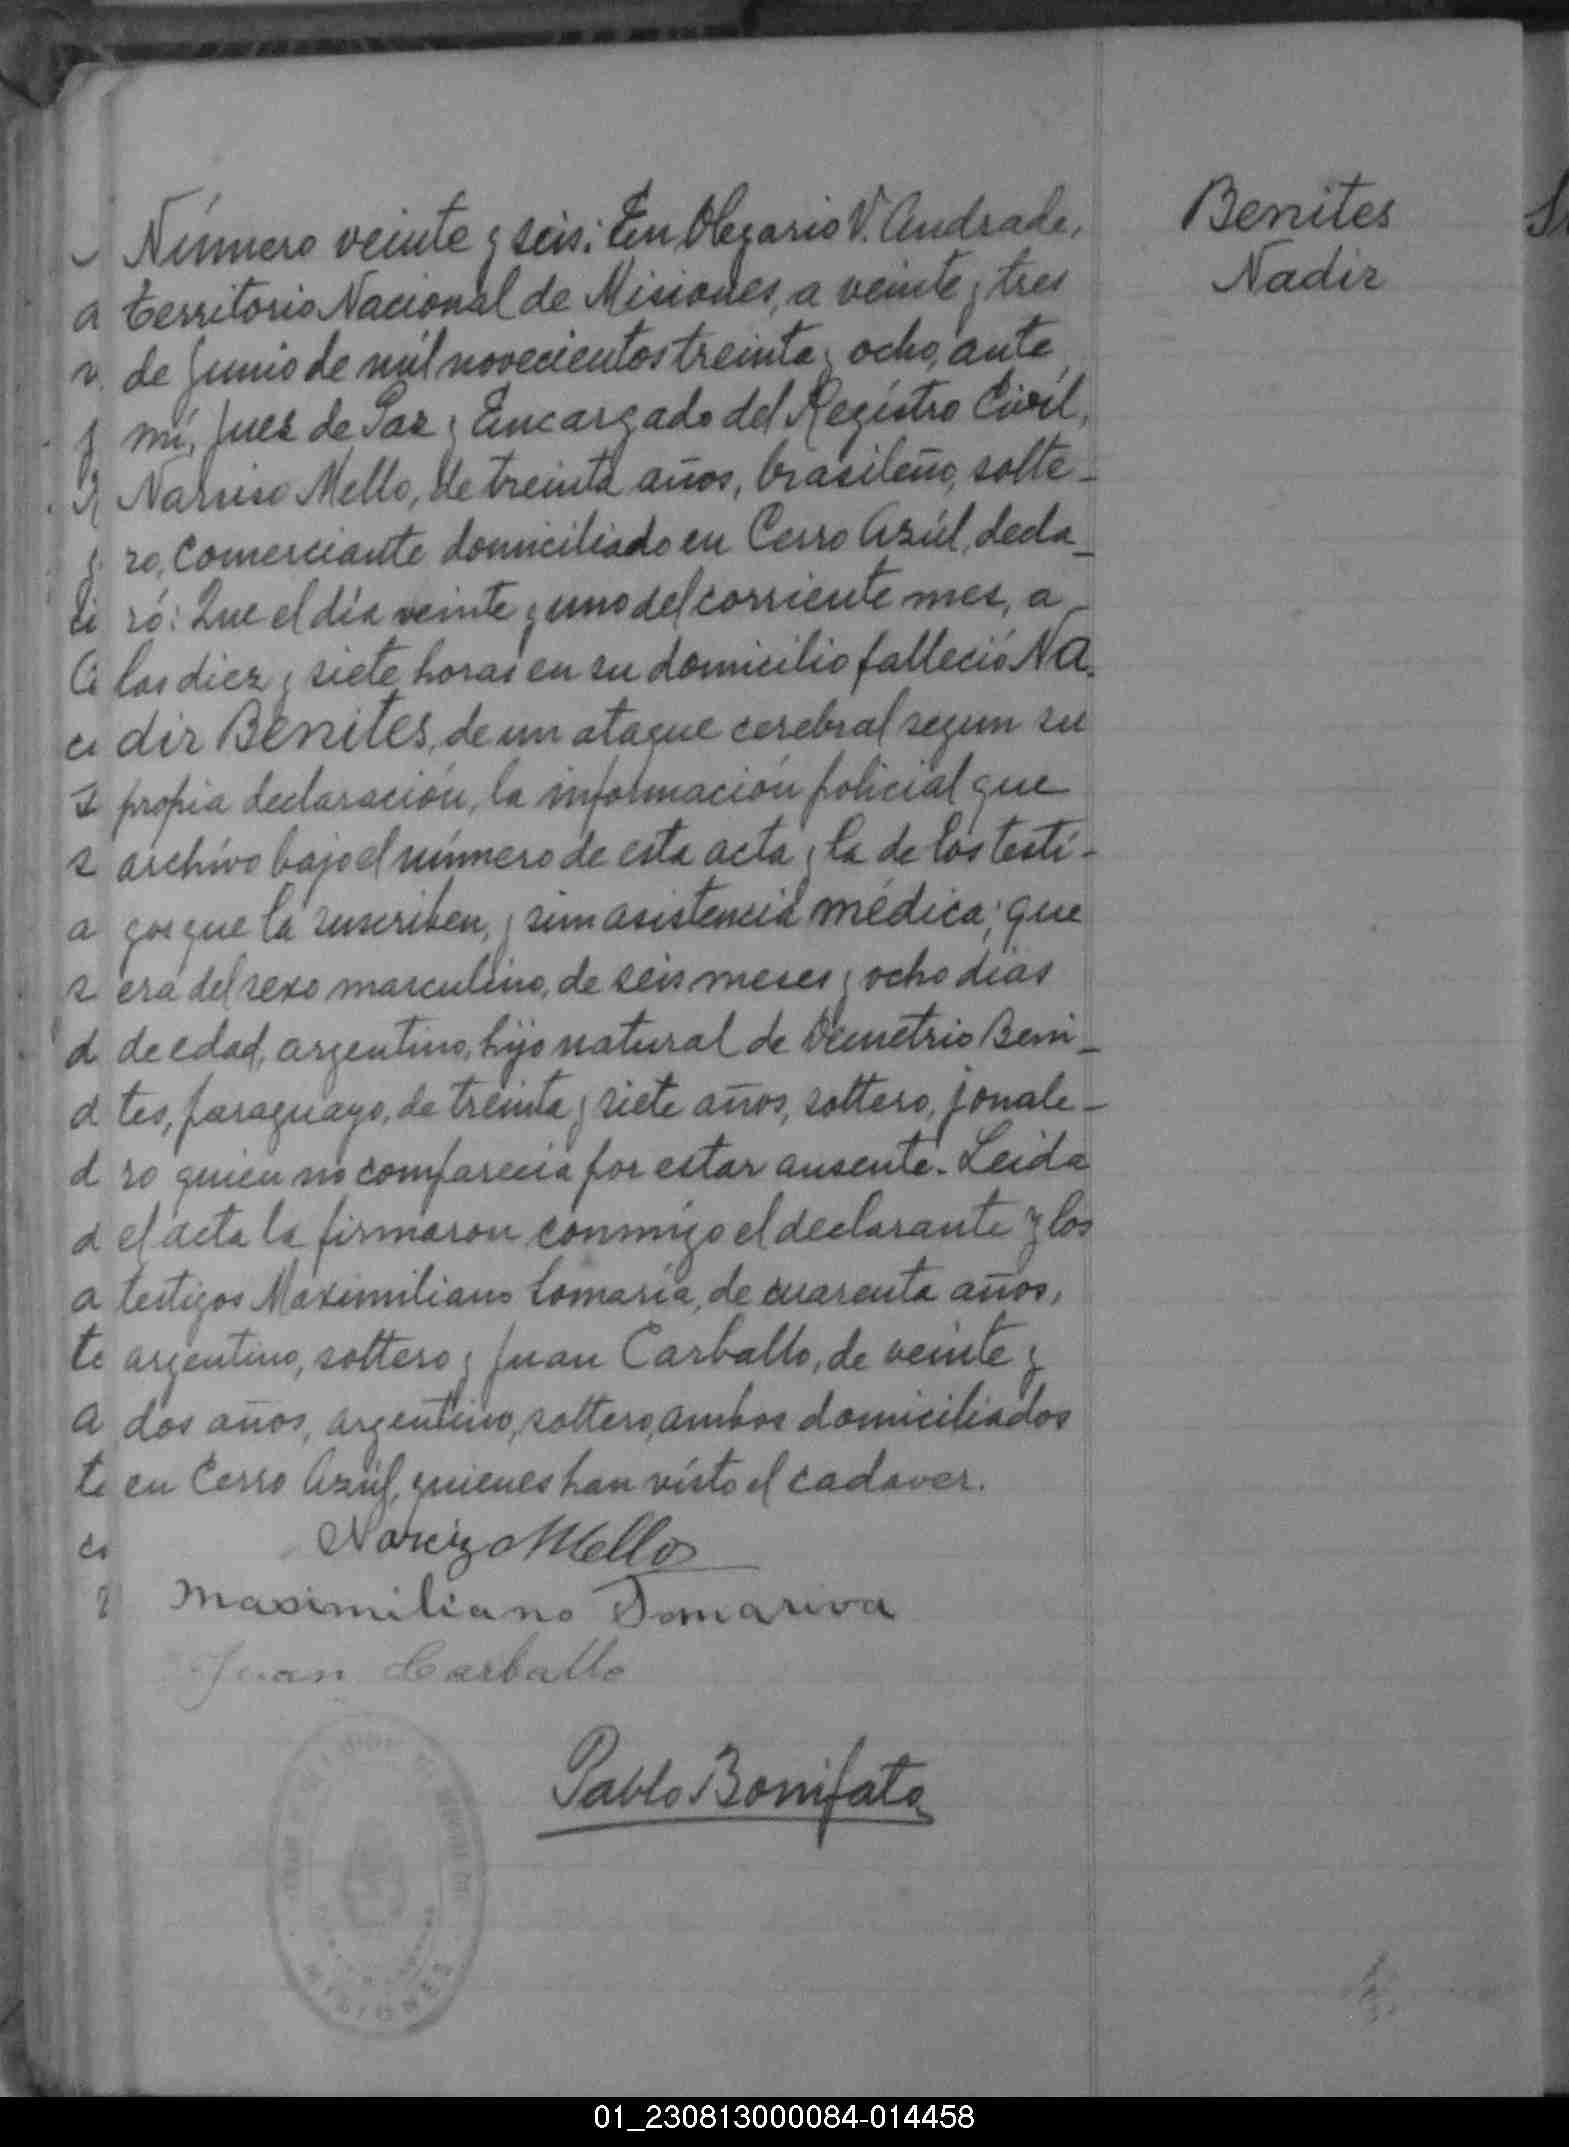 Benites
Nadir
Número veinte y seis: En Olegario V. Andrade,
territorio Nacional de Misiones, a veinte y tres
de Junio de mil novecientos treinta y ocho, ante
mí, Juez de Paz y Encargado del Regístro Civíl,
Narciso Mello, de treinta años, brasileño, solte-
ro, Comerciante domiciliado en Cerro Azúl, decla-
ró: Que el día veinte y uno del corriente mes, a
las diez y siete horas en su domicilio falleció Na-
dir Benites, de un ataque cerebral segun su
propia declaración, la información policial que
archívo bajo el número de esta acta y la de los testí-
gos que la suscriben, y sin asistencia médica; que
era del sexo masculino, de seis meses y ocho dias
de edad, argentino, hijo natural de Demetrio Beni-
tes, paraguayo, de treinta y siete años, soltero, jornale-
ro quien no comparecia por estar ausente. Leida
el acta la firmaron conmigo el declarante y los
testigos Maximiliano Tomaria, de cuarenta años,
argentino, soltero y Juan Carballo, de veinte y
dos años, argentino, soltero, ambos domiciliados
en Cerro Azúl, quienes han vísto el cadaver.
Narciz Mello
Maximiliano Tomariva
Juan Carballo
Pablo Bonifato
MISIONES
01_230813000084-014458